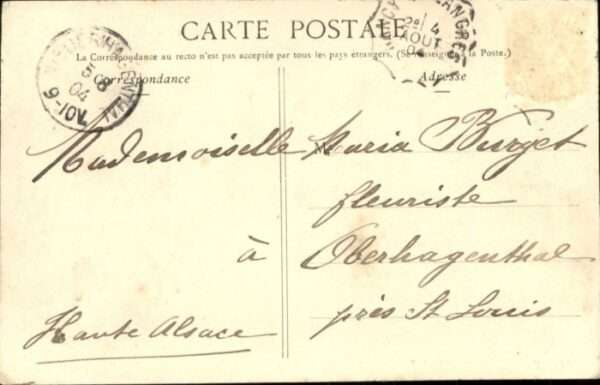 CARTE POSTALE
La Correspondance au recto n'est pas acceptée par tous les pays étrangers. (Se renseigner à la Poste.)
Correspondance
Adresse
5/8
04
9-10V.
LANGRES
2e/4
AOUT
04
Mademoiselle Maria Burget
fleuriste
à Oberhagenthal
près St Louis
Haute Alsace